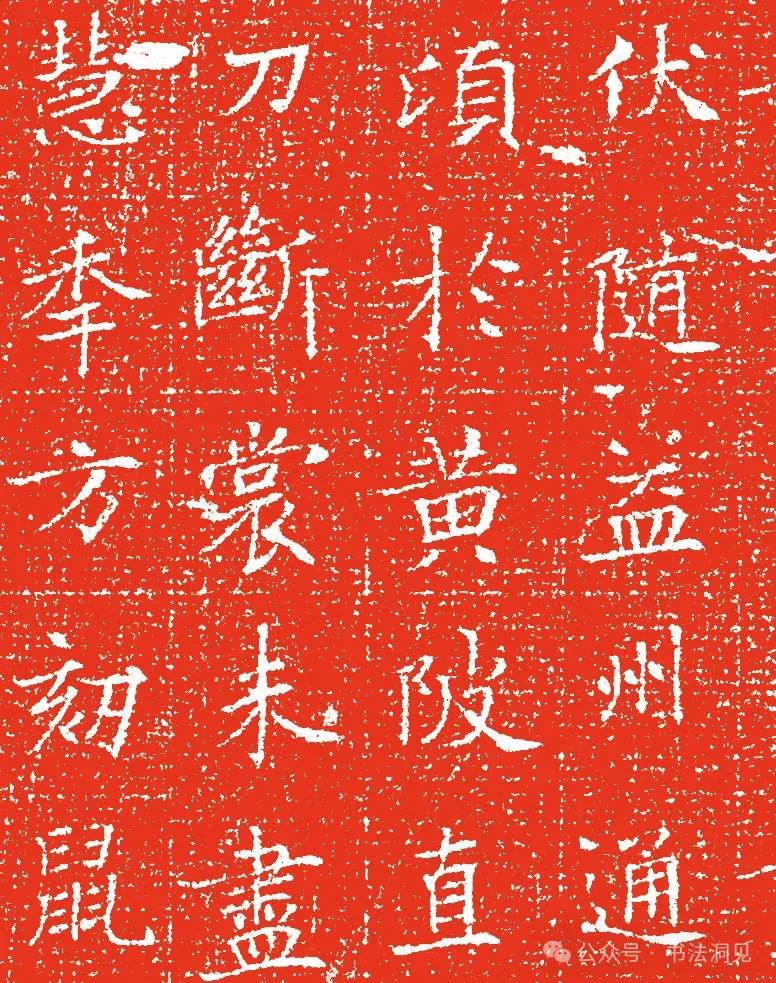 伏随益州通
頃於黄陂直
刀斷裳未盡
慧年方刻鼠
公众号 · 书法洞见